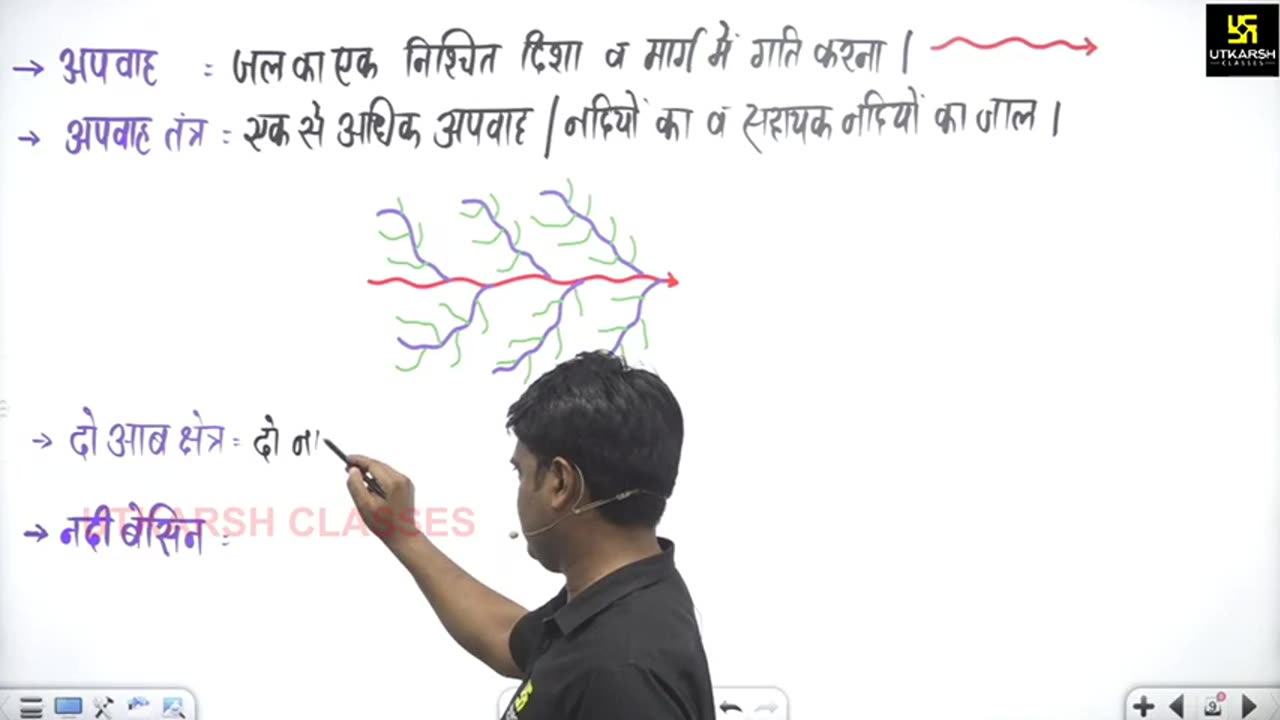 UTKARSH
CLASSES
→ अपवाह : जल का एक निश्चित दिशा व मार्ग में गति करना।
→ अपवाह तंत्र = एक से अधिक अपवाह / नदियों का व सहायक नदियों का जाल।
→ दो आब क्षेत्र = दो
→ नदी बेसिन :
UTKARSH CLASSES
9